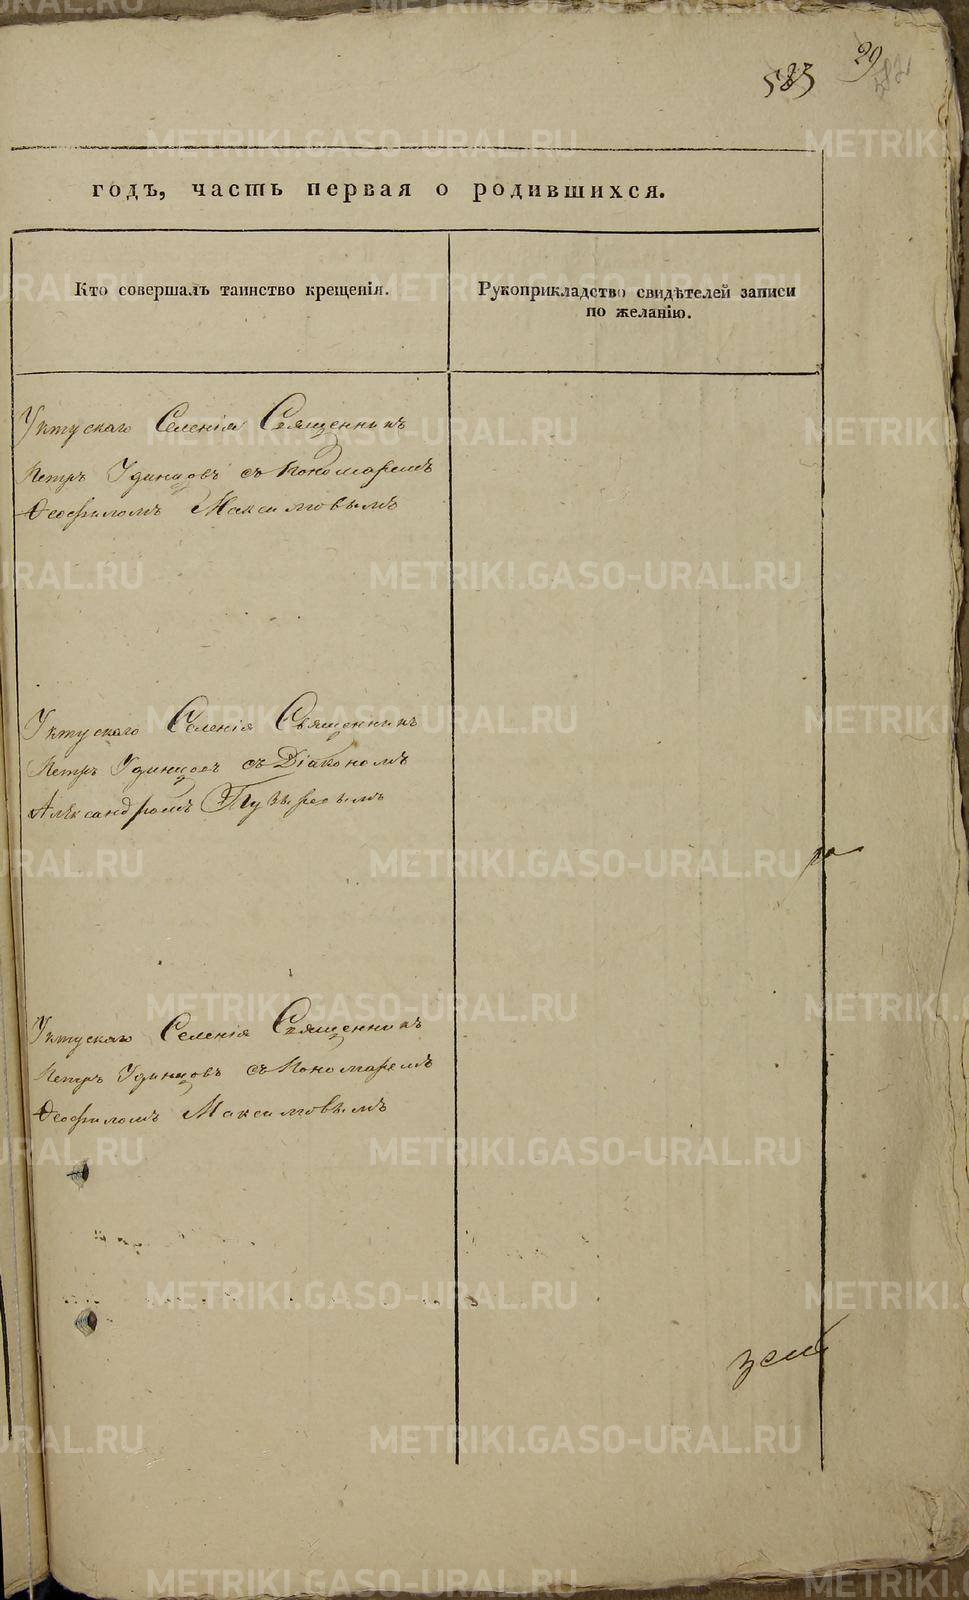 585
29
582
годъ, часть первая о родившихся.
Кто совершалъ таинство крещенія.
Рукоприкладство свидѣтелей записи
по желанію.
Уктускаго Селенія Священникъ
Петръ Удинцовъ съ Пономаремъ
Ѳеофиломъ Максимовымъ
Уктускаго Селенія Священникъ
Петръ Удинцовъ съ Діакономъ
Александромъ Пузыревымъ
Уктускаго Селенія Священникъ
Петръ Удинцовъ съ Пономаремъ
Ѳеофиломъ Максимовымъ
METRIKI.GASO-URAL.RU